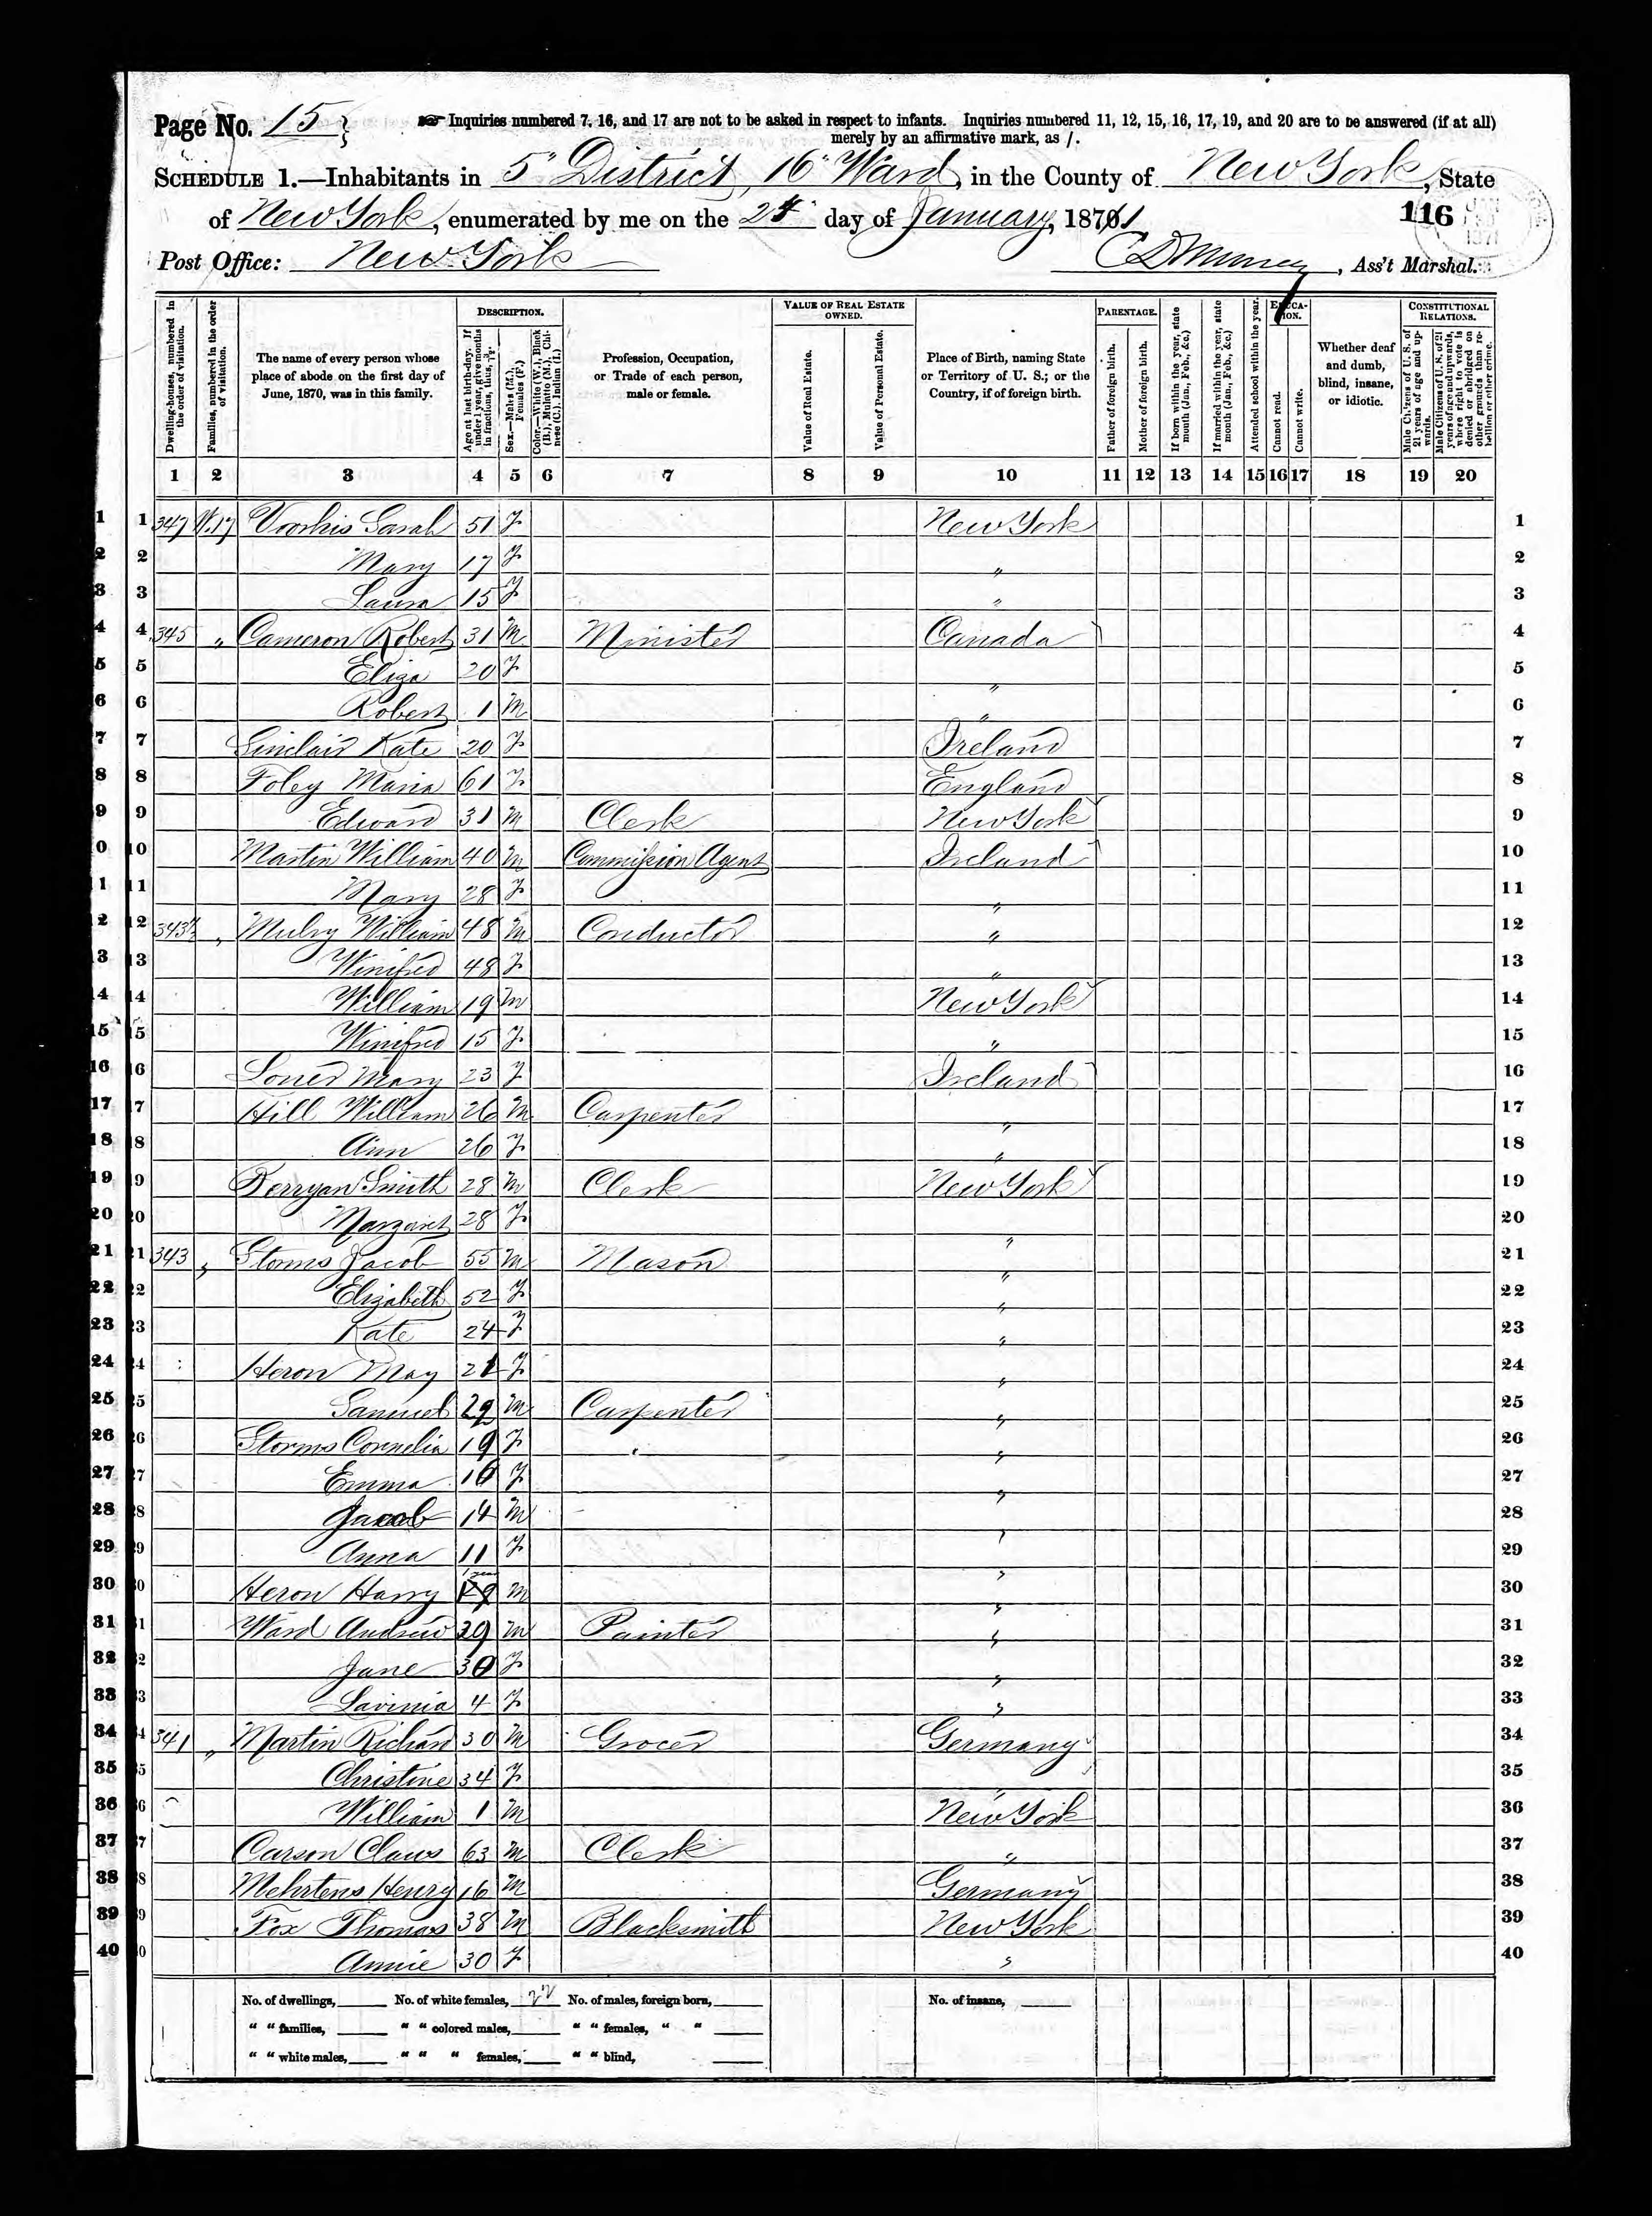 Page No. 15
Inquiries numbered 7, 16, and 17 are not to be asked in respect to infants. Inquiries numbered 11, 12, 15, 16, 17, 19, and 20 are to be answered (if at all)
merely by an affirmative mark, as /.
SCHEDULE 1.—Inhabitants in 5" District, 16" Ward, in the County of New York, State
of New York, enumerated by me on the day of January, 1871
116
Post Office: New York , Ass't Marshal.
Dwelling-houses, numbered in the order of visitation.
Families, numbered in the order of visitation.
The name of every person whose place of abode on the first day of June, 1870, was in this family.
DESCRIPTION.
Age at last birth-day. If under 1 year, give months in fractions, thus, 3/12.
Sex.—Males (M.), Females (F.)
Color.—White (W.), Black (B.), Mulatto (M.), Chinese (C.), Indian (I.)
Profession, Occupation, or Trade of each person, male or female.
VALUE OF REAL ESTATE OWNED.
Value of Real Estate.
Value of Personal Estate.
Place of Birth, naming State or Territory of U. S.; or the Country, if of foreign birth.
PARENTAGE.
Father of foreign birth.
Mother of foreign birth.
If born within the year, state month (Jan., Feb., &c.)
If married within the year, state month (Jan., Feb., &c.)
Attended school within the year.
EDUCATION.
Cannot read.
Cannot write.
Whether deaf and dumb, blind, insane, or idiotic.
CONSTITUTIONAL RELATIONS.
Male Citizens of U. S. of 21 years of age and upwards.
Male Citizens of U. S. of 21 years of age and upwards, where right to vote is denied or abridged on other grounds than rebellion or other crime.
1 2 3 4 5 6 7 8 9 10 11 12 13 14 15 16 17 18 19 20
1 347 W.17 Voorhis Sarah 51 F New York 1
2 Mary 17 F " 2
3 Laura 15 F " 3
4 345 " Cameron Robert 31 M Minister Canada 4
5 Eliza 20 F " 5
6 Robert 1 M " 6
7 Sinclair Kate 20 F Ireland 7
8 Foley Maria 61 F England 8
9 Edward 31 M Clerk New York 9
10 Martin William 40 M Commission Agent Ireland 10
11 Mary 28 F " 11
12 343½ " Mulry William 48 M Conductor " 12
13 Winifred 48 F " 13
14 William 19 M New York 14
15 Winifred 15 F " 15
16 Mary 23 F Ireland 16
17 Hill William 26 M Carpenter " 17
18 Ann 26 F " 18
19 Smith 28 M Clerk New York 19
20 Margaret 28 F " 20
21 343 " Storms Jacob 55 M Mason " 21
22 Elizabeth 52 F " 22
23 Kate 24 F " 23
24 Heron May 21 F " 24
25 Samuel 29 M Carpenter " 25
26 Storms Cornelia 19 F " 26
27 Emma F " 27
28 Jacob 14 M " 28
29 Anna 11 F " 29
30 Heron Harry M " 30
31 Ward Andrew 39 M Painter " 31
32 Jane 30 F " 32
33 Lavinia 4 F " 33
34 341 " Martin Richard 30 M Grocer Germany 34
35 Christine 34 F " 35
36 William 1 M New York 36
37 Carson Claus 63 M Clerk " 37
38 Mehrtens Henry 16 M Germany 38
39 Fox Thomas 38 M Blacksmith New York 39
40 Annie 30 F " 40
No. of dwellings, No. of white females, 22 No. of males, foreign born, No. of insane,
" " families, " " colored males, " " females, " "
" " white males, " " " females, " " blind,